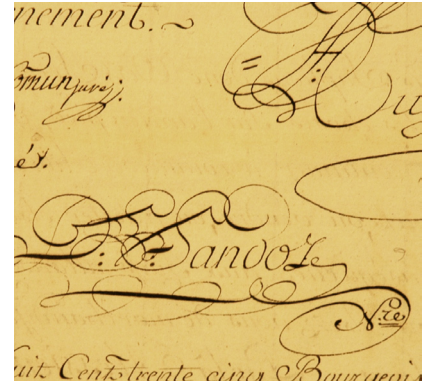 nement.
juré;
é.
Sandoz
N.re
uit Cent trente cinq Bourgeois